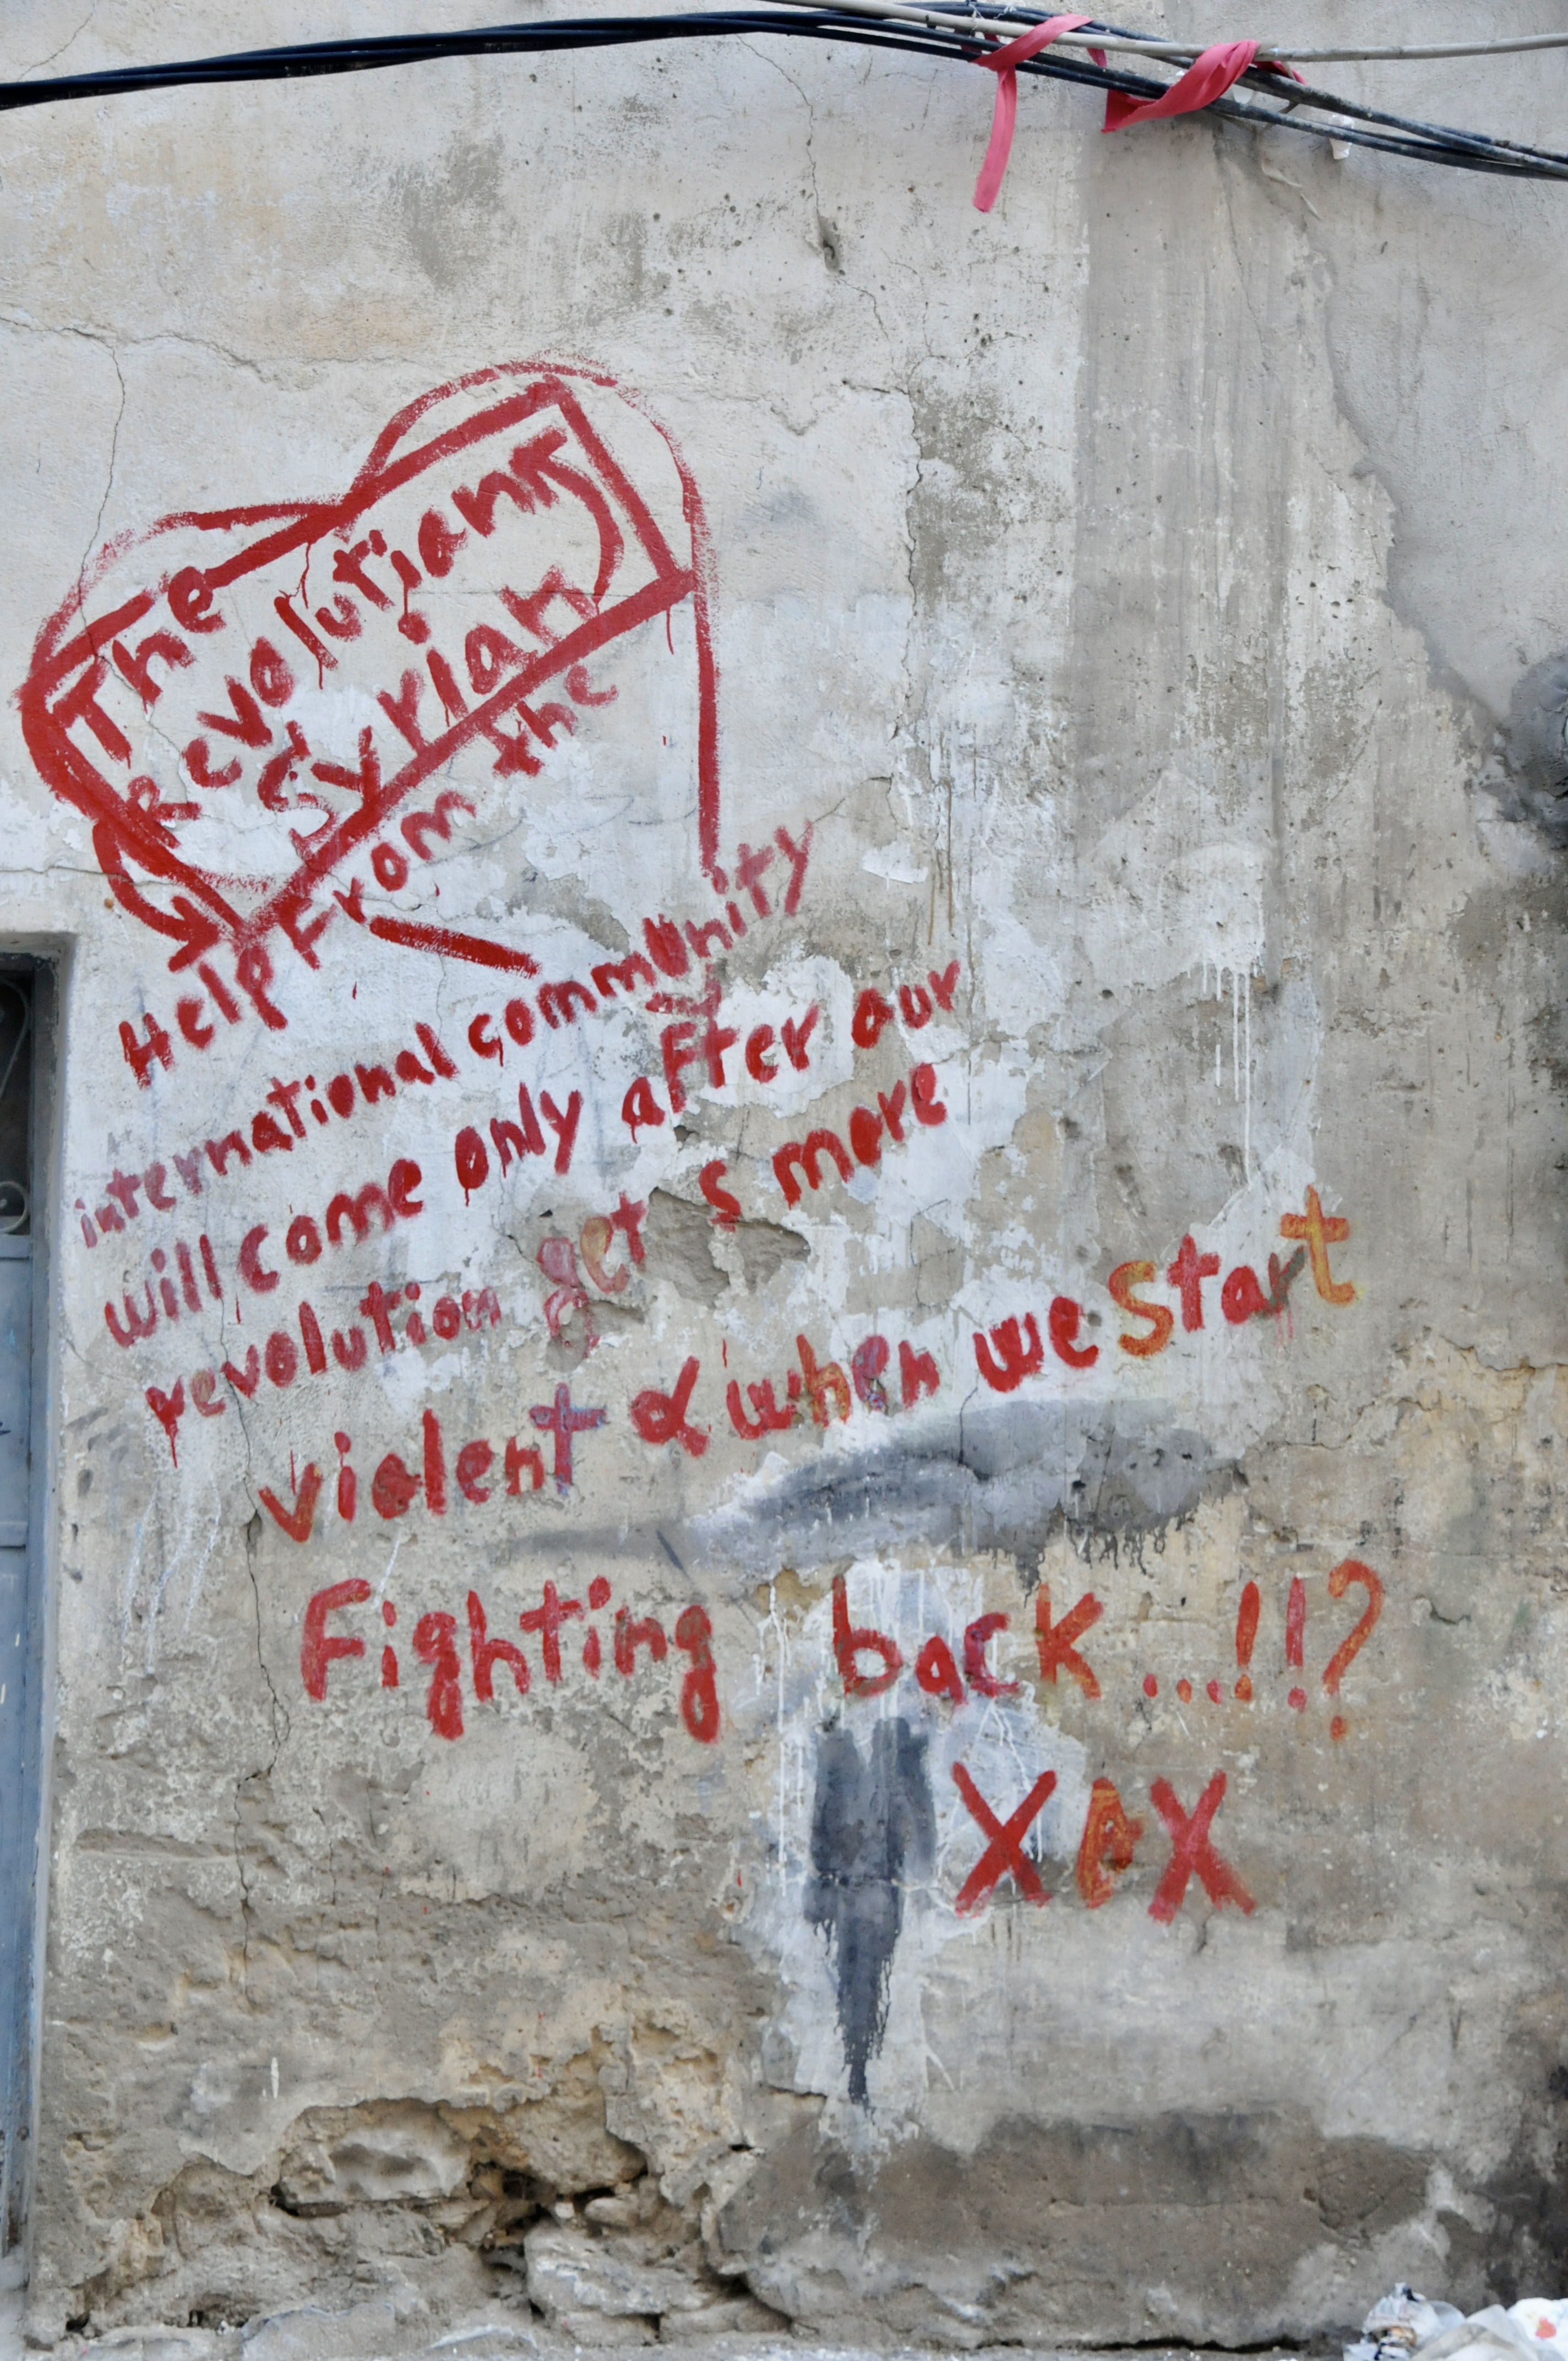 The
Revolutions
Syrian
Help From the
international community
will come only after our
revolution get s more
violent & when we start
Fighting back...!!?
XOX